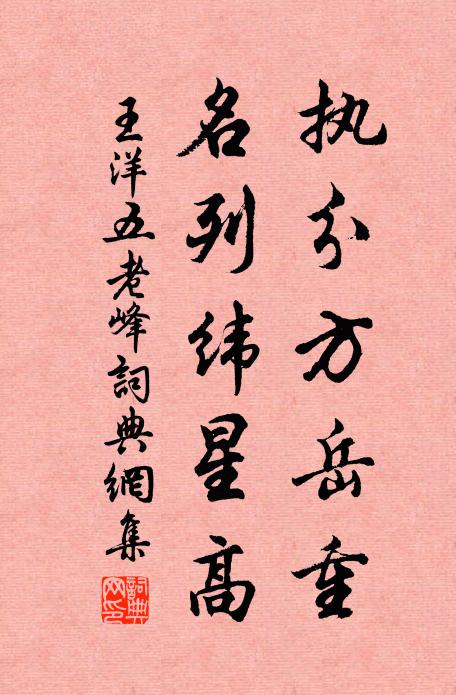 执分方岳重
名列纬星高
王洋五老峰詞典網集
詞典网印